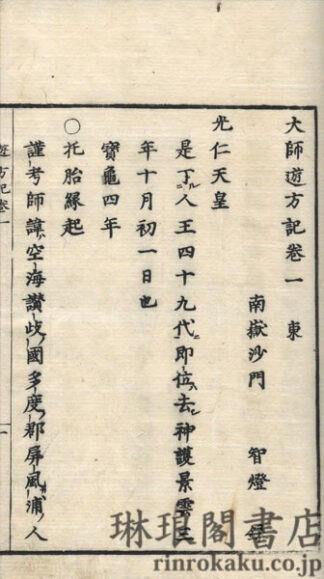 大師遊方記卷一 東
南嶽沙門 智燈
光仁天皇
是丁人王四十九代即位去神護景雲三
年十月初一日也
寶龜四年
○托胎縁起
謹考師諱空海讃歧國多度郡屏風浦人
遊方記卷一
一
琳琅閣書店
rinrokaku.co.jp